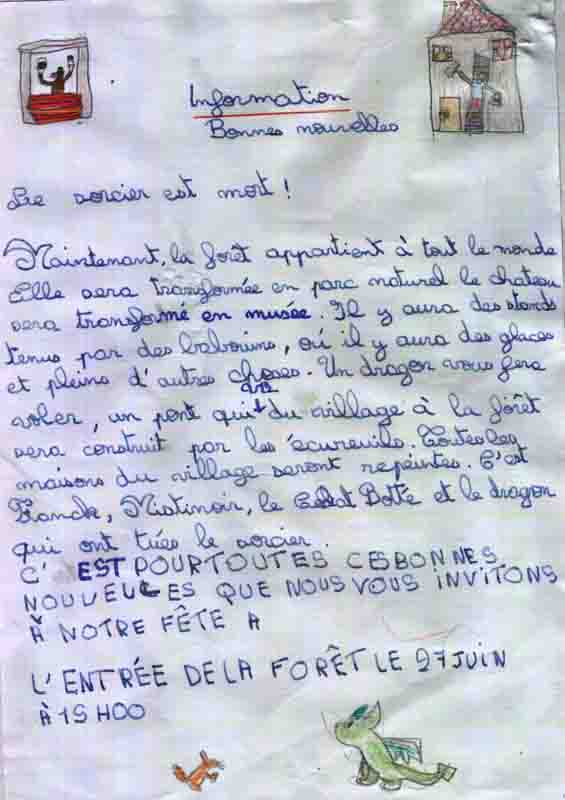 Information
Bonnes nouvelles
Le sorcier est mort !
Maintenant, la forêt appartient à tout le monde
Elle sera transformée en parc naturel le chateau
sera transformé en musée. Il y aura des stands
tenus par des babouins, où il y aura des glaces
et pleins d'autres choses. Un dragon vous fera
voler, un pont qui va du village à la forêt
sera construit par les écureuils. Toutes les
maisons du village seront repeintes. C'est
Franck, Mistinoir, le Botté et le dragon
qui ont tués le sorcier.
C'EST POUR TOUTES CES BONNES
NOUVELLES QUE NOUS VOUS INVITONS
À NOTRE FÊTE A
L'ENTRÉE DE LA FORÊT LE 27 JUIN
À 19 H00